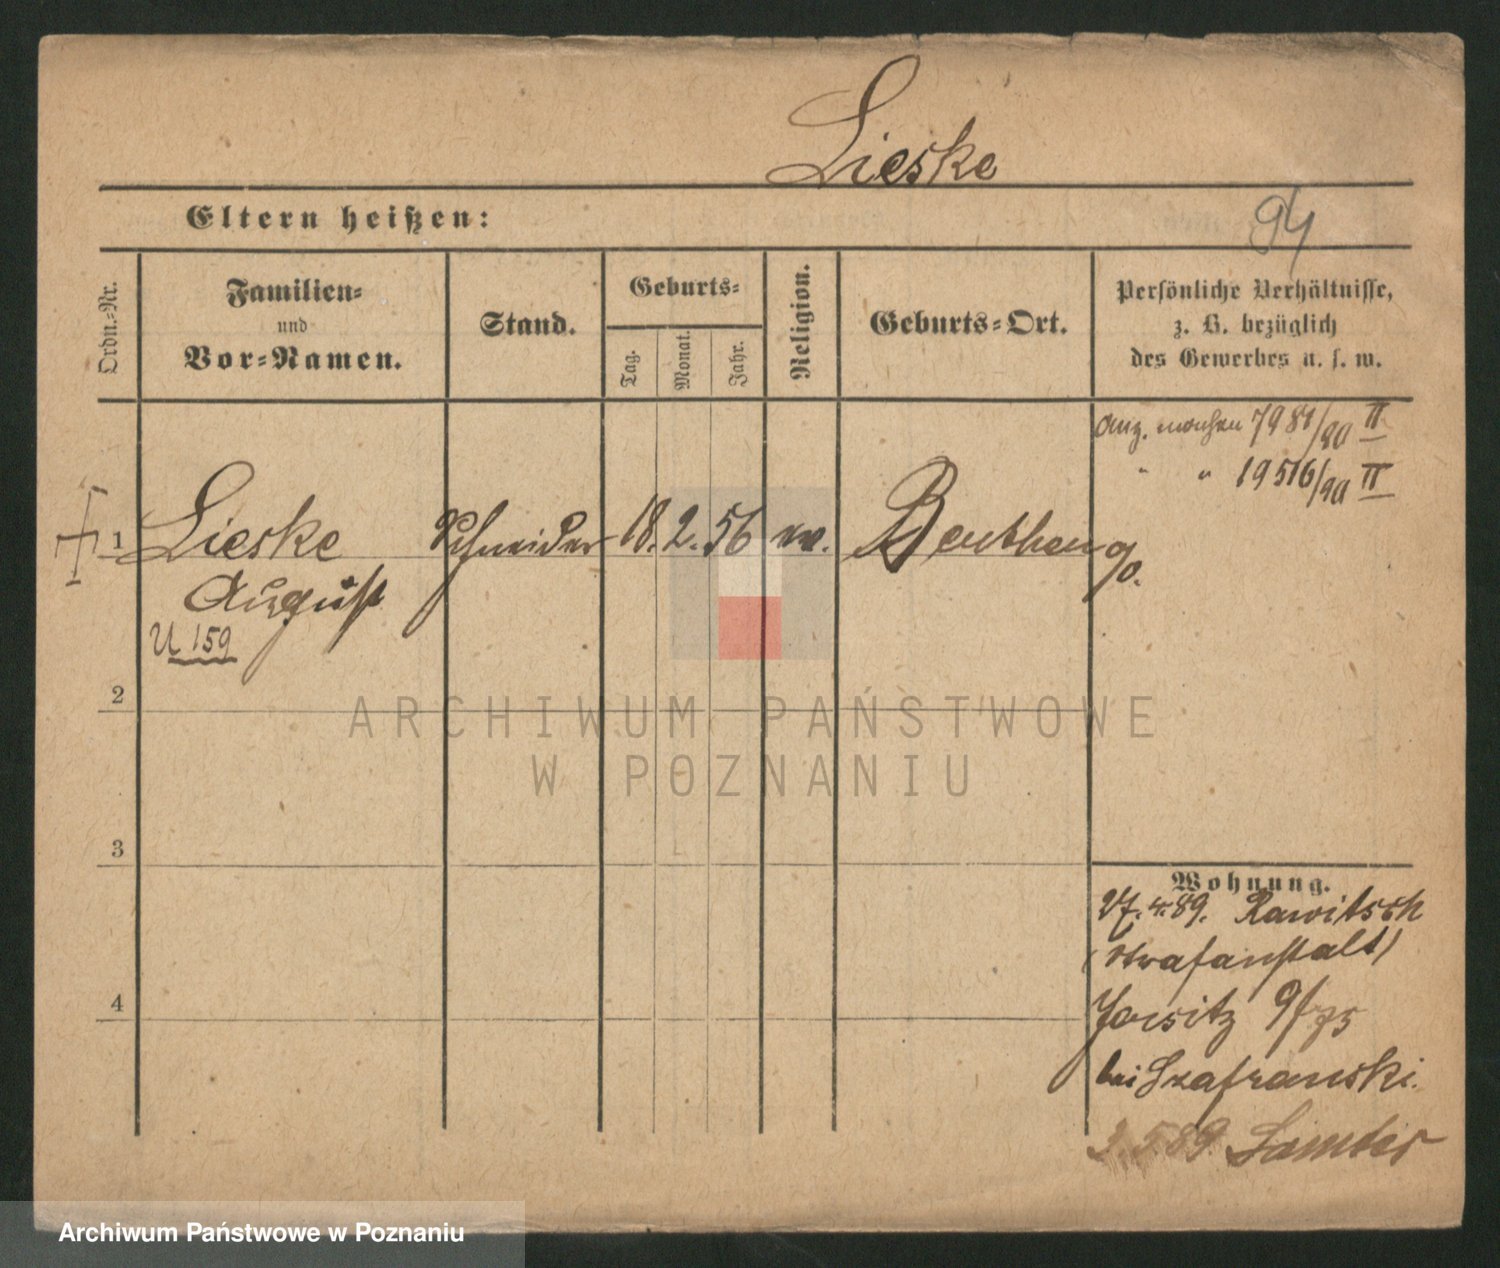 Lieske
Eltern heißen:
94
Ordn.-Nr.
Familien-
und
Vor-Namen.
Stand.
Geburts-
Tag.
Monat.
Jahr.
Religion.
Geburts-Ort.
Persönliche Verhältnisse,
z. B. bezüglich
des Gewerbes u. s. w.
7981/90 II
" " 19516/90 II
1 Lieske Schneider 18. 2. 56 ev. Beuthen a/o.
August
U 159
2
3
4
Wohnung.
27.4.89. Rawitsch
(Strafanstalt)
Jersitz 9/75
bei Szafranski.
2.5.89. Samter
ARCHIWUM PAŃSTWOWE
W POZNANIU
Archiwum Państwowe w Poznaniu